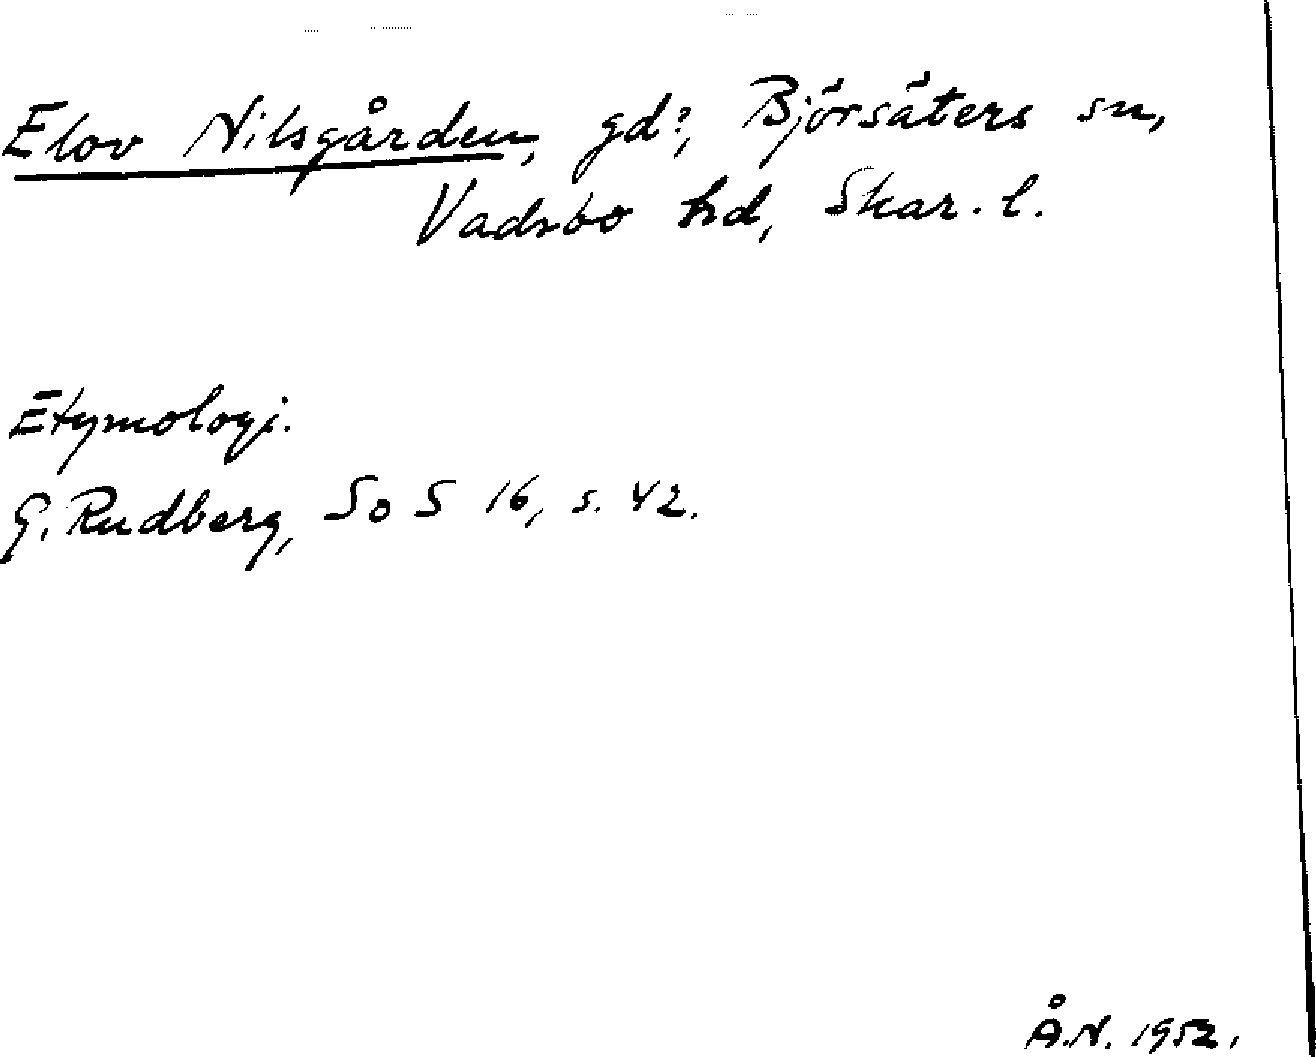 Elov Nilsgården, gd?, Björsäters sn,
Vadsbo hd, Skar. l.
Etymologi.
G. Rudberg, SoS 16, s. 42.
Å.N. 1952.